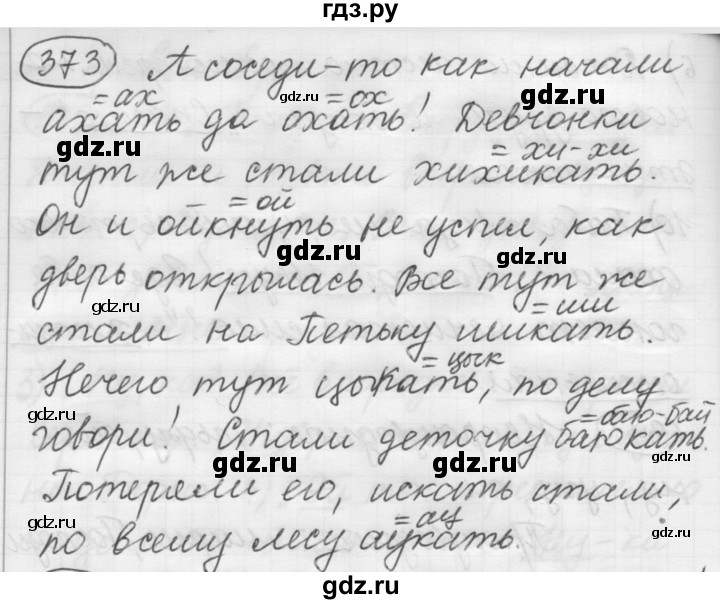 гдз.ру
373 А соседи-то как начали
=ах =ох
ахать да охать! Девчонки
=хи-хи
тут же стали хихикать.
=ой
Он и ойкнуть не успел, как
дверь открылась. Все тут же
=ши
стали на Петьку шикать.
=цык
Нечего тут цыкать, по делу
=баю-бай
говори! Стали деточку баюкать.
Потеряли его, искать стали,
=ау
по всему лесу аукать.
gdz.ru
gdz.ru
gdz.ru
gdz.ru
gdz.ru
gdz.ru
gdz.ru
gdz.ru
gdz.ru
gdz.ru
gdz.ru
gdz.ru
gdz.ru
gdz.ru